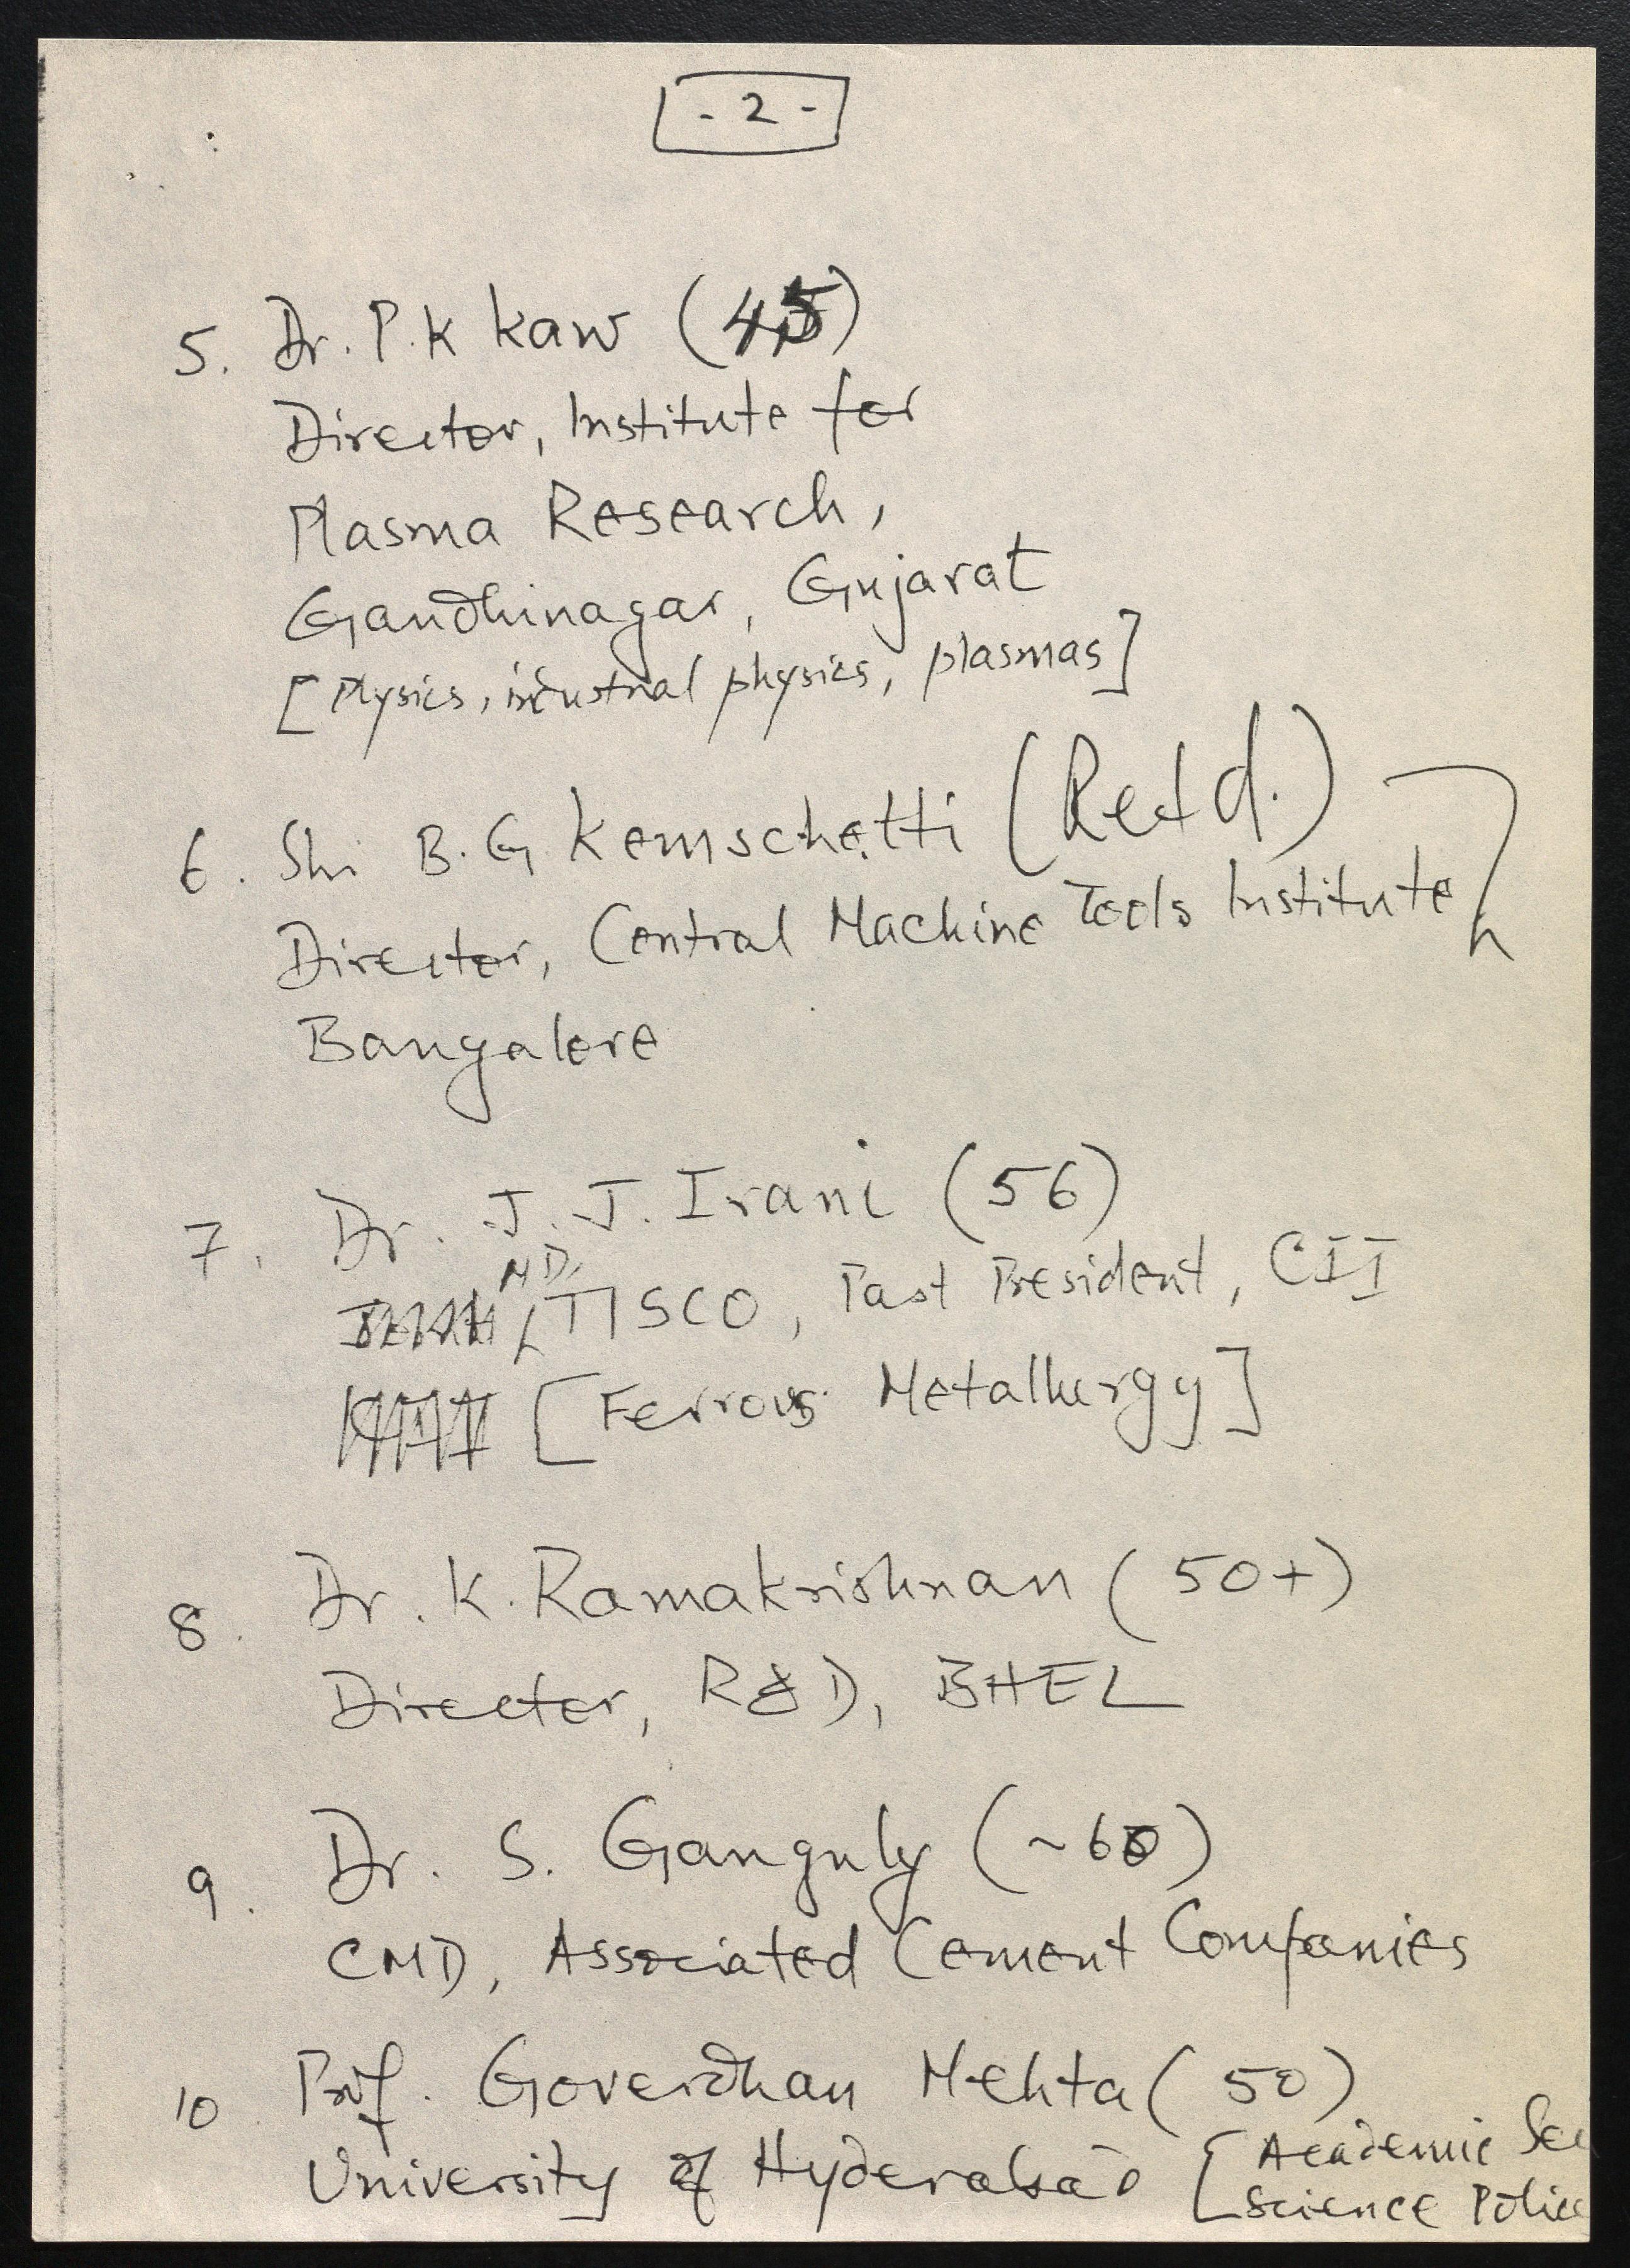 - 2 -
5. Dr. P. K Kaw (45)
Director, Institute for
Plasma Research,
Gandhinagar, Gujarat
[Physics, industrial physics, plasmas]
6. Shri B. G. Kemschetti (Retd.)
Director, Central Machine Tools Institute
Bangalore
7. Dr. J. J. Irani (56)
MD, TISCO, Past President, CII
[Ferrous Metallurgy]
8. Dr. K. Ramakrishnan (50+)
Director, R&D, BHEL
9. Dr. S. Ganguly (~60)
CMD, Associated Cement Companies
10 Prof. Goverdhan Mehta (50)
University of Hyderabad [Academic
Science